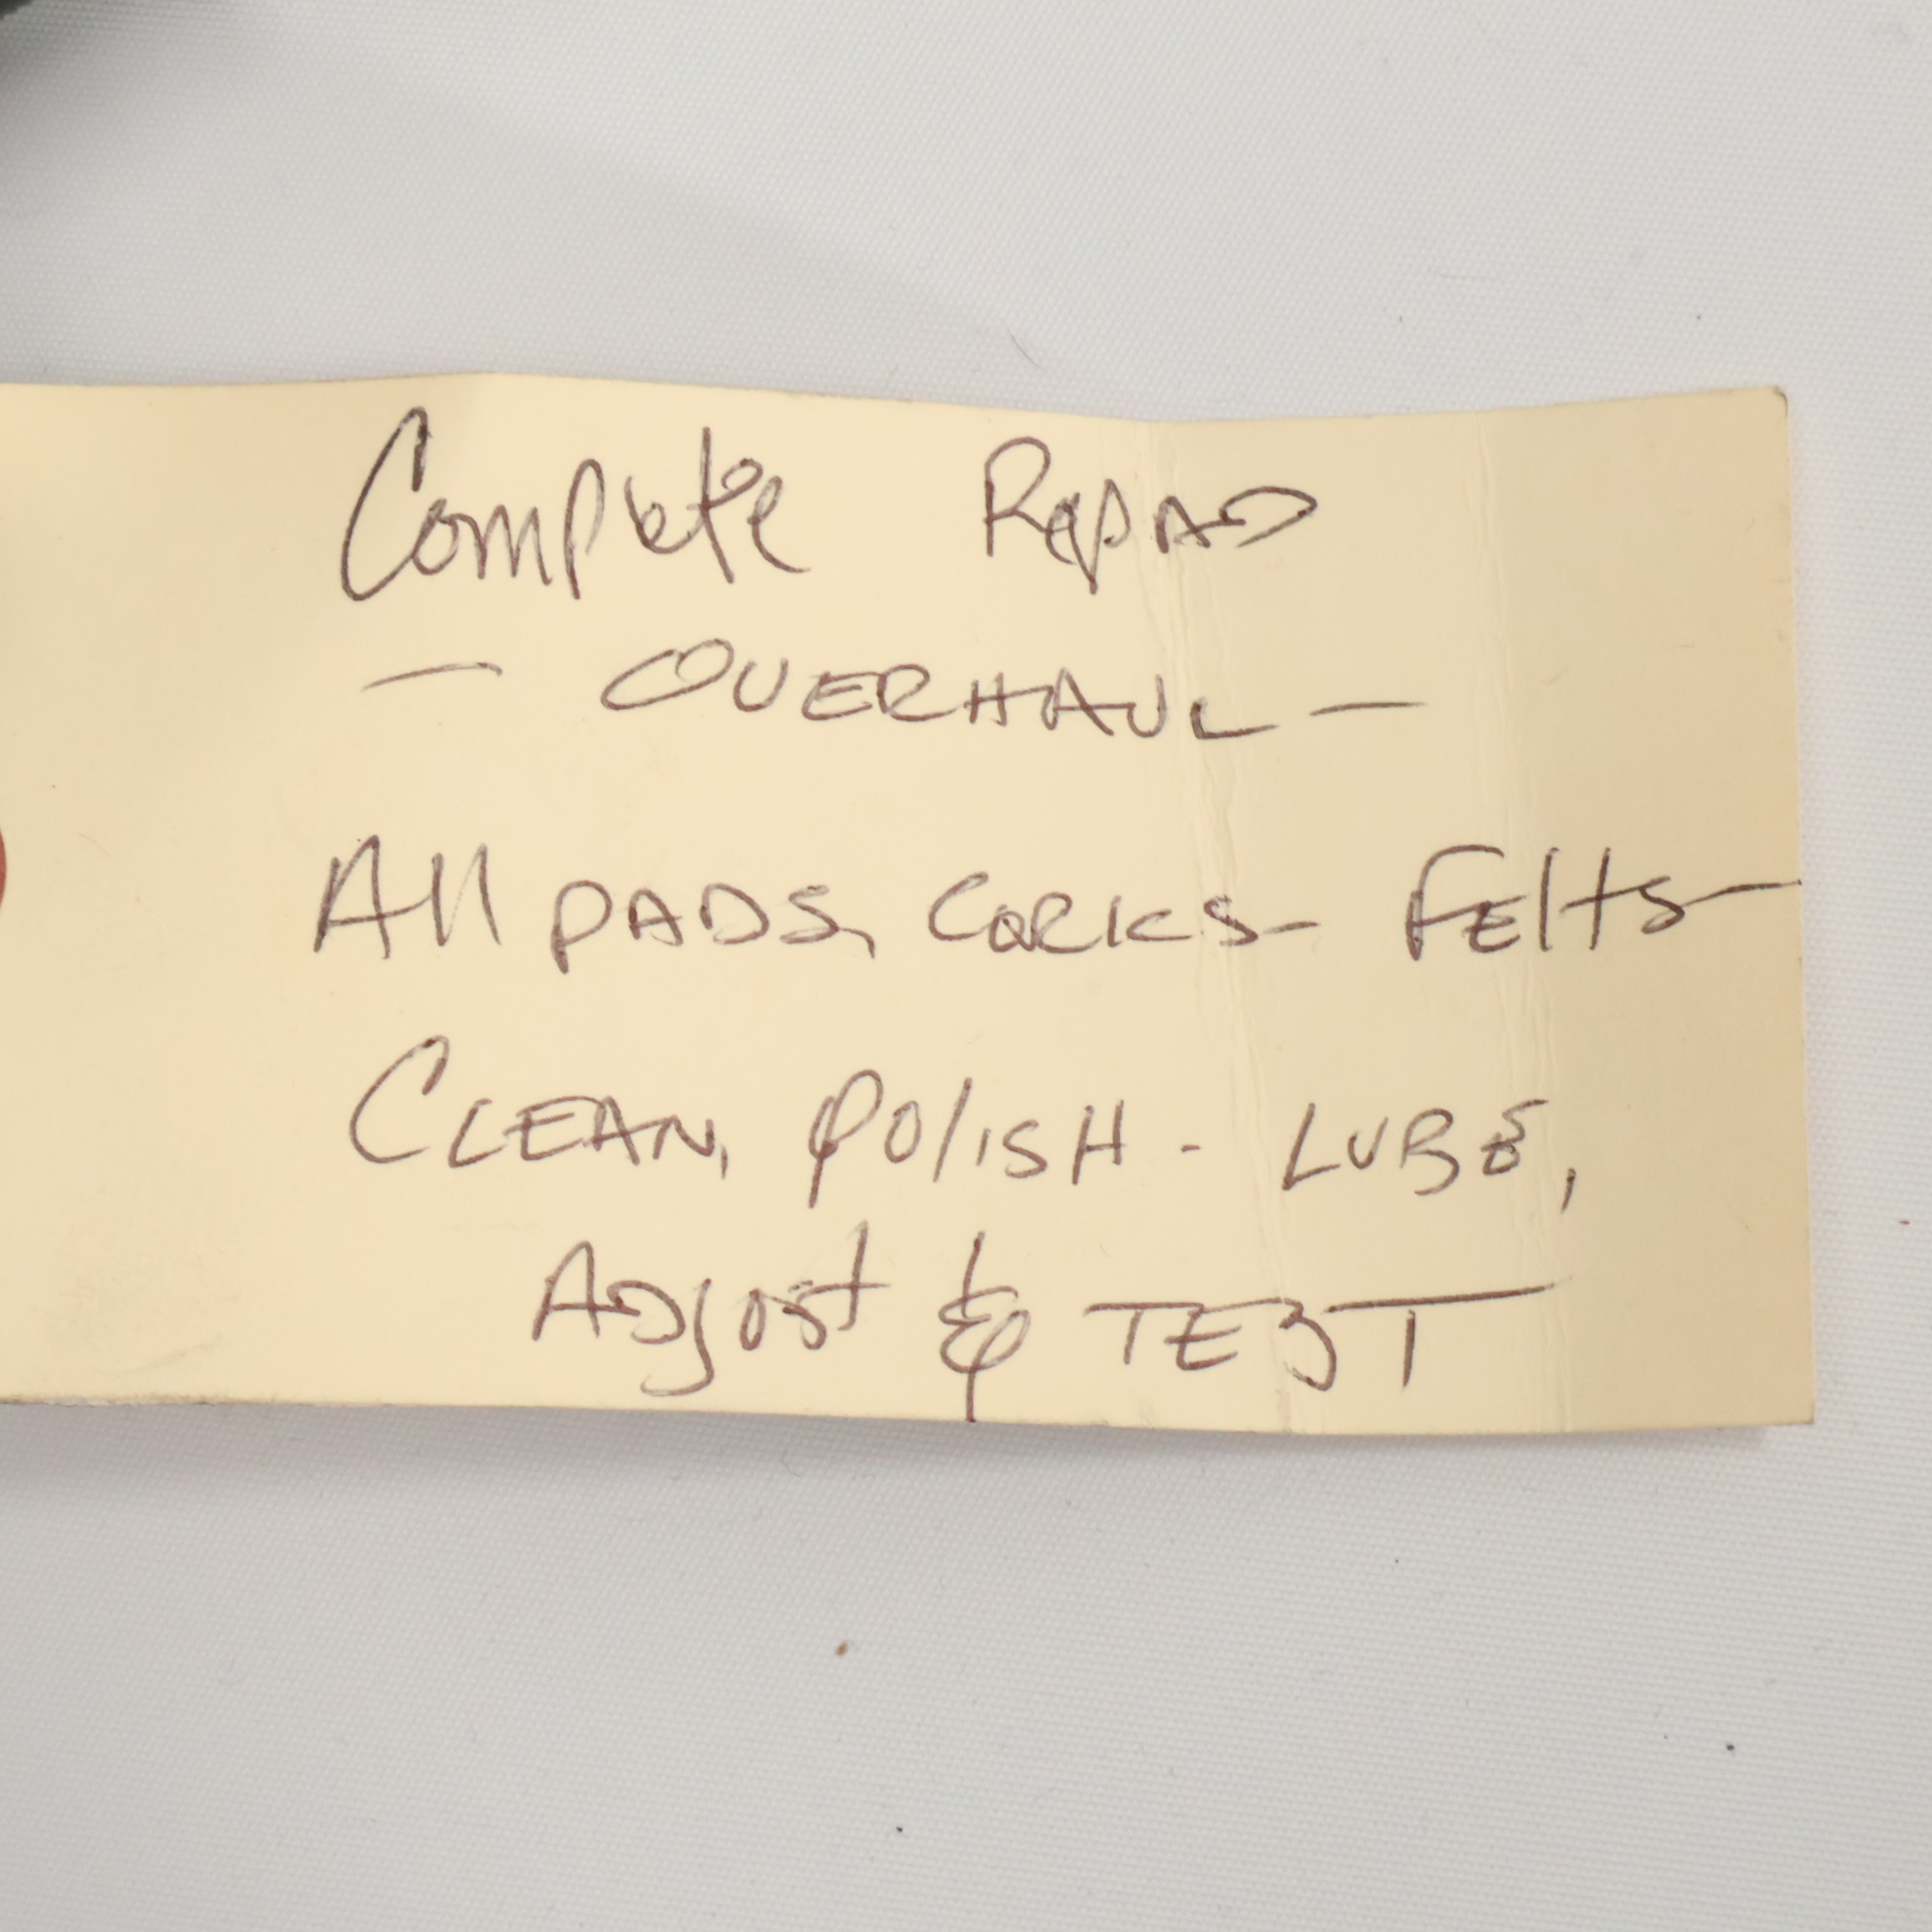 Complete Repad
- OVERHAUL -
All PADS, CORKS - FElts -
CLEAN, POlISH - LUBE,
Adjust & TEST